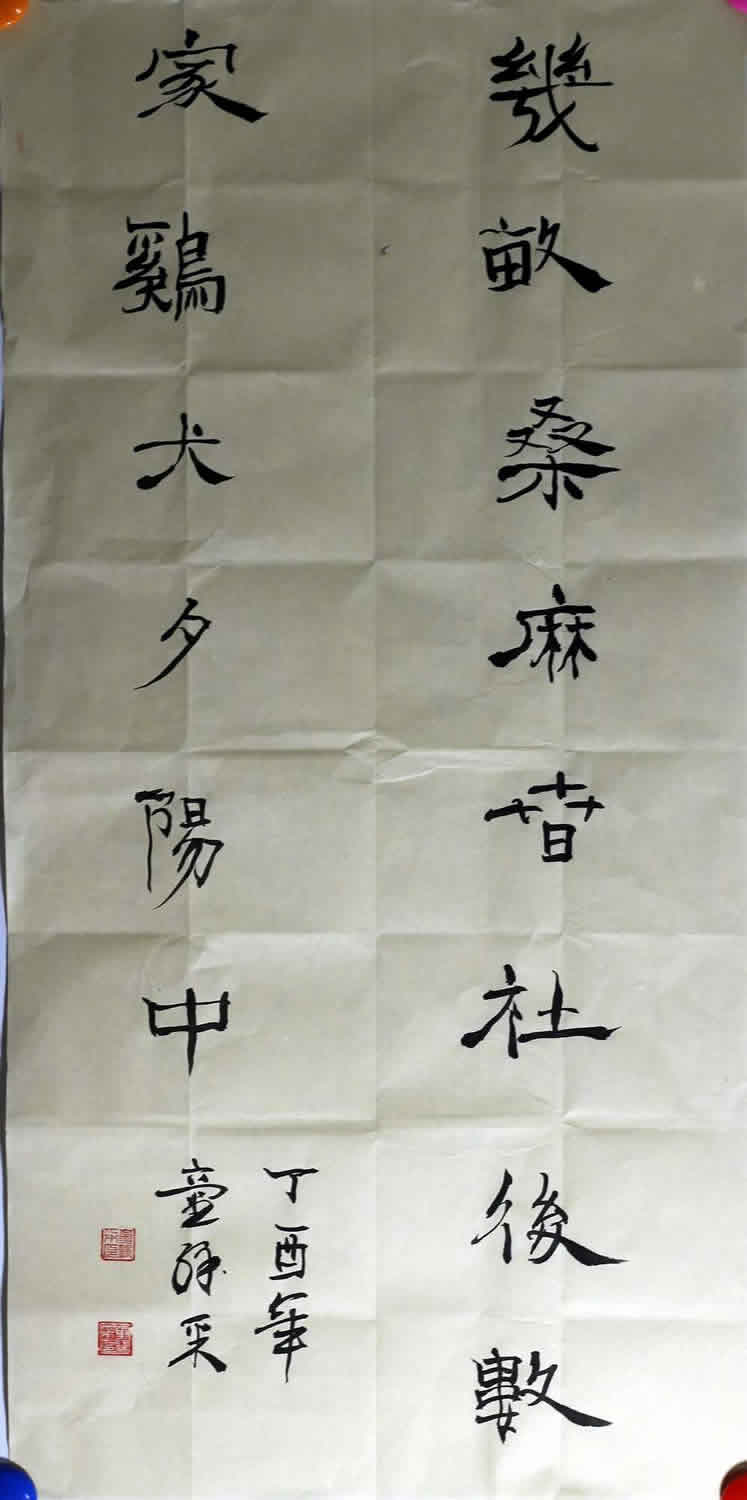 幾畝桑麻春社後數
家鷄犬夕陽中
丁酉年
童采